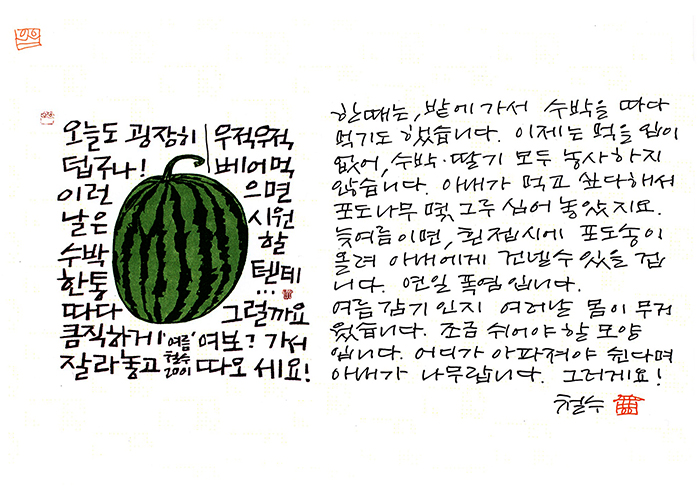 오늘도 굉장히
덥구나!
이런
날은
수박
한통
따다
큼직하게
잘라놓고
우적우적
베어먹
으면
시원
할
텐데
...
그럴까요
여보? 가서
따오세요!
'여름'
철수
2001
한때는, 밭에 가서 수박을 따다
먹기도 했습니다. 이제는 먹을 입이
없어, 수박·딸기 모두 농사하지
않습니다. 아내가 먹고 싶다해서
포도나무 몇 그루 심어 놓았지요.
늦여름이면, 흰 접시에 포도송이
올려 아내에게 건넬 수 있을 겁
니다. 연일 폭염입니다.
여름감기인지 여러날 몸이 무거
웠습니다. 조금 쉬어야 할 모양
입니다. 어디가 아파져야 쉰다며
아내가 나무랍니다. 그러게요!
철수